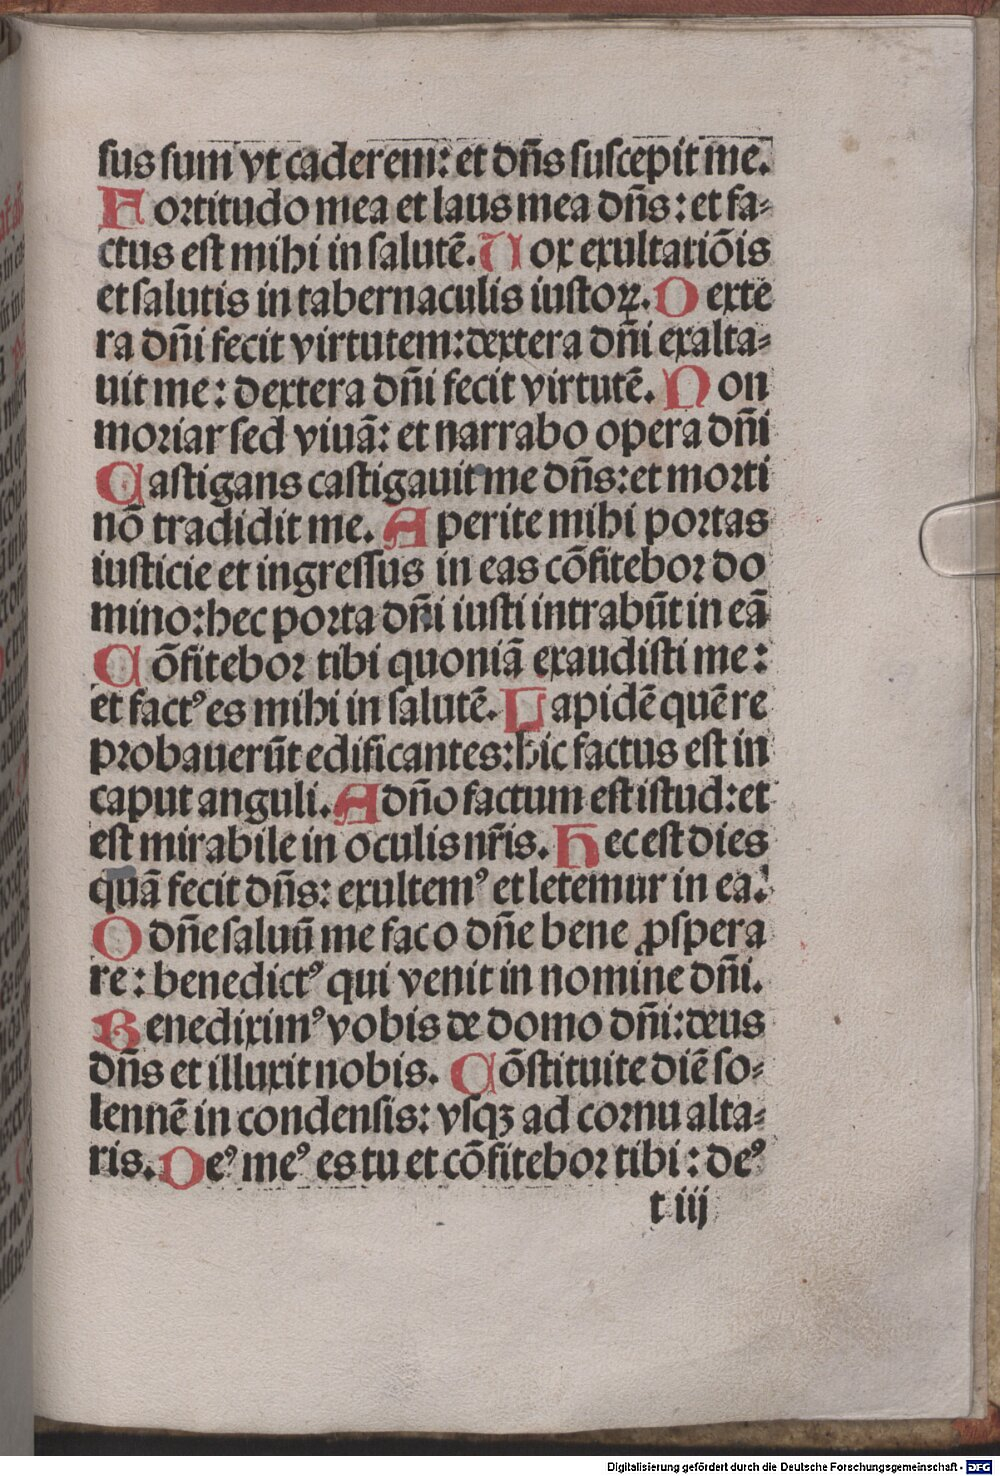 sus sum vt caderem: et dn̄s suscepit me.
Fortitudo mea et laus mea dn̄s: et fa⸗
ctus est mihi in salutē. Vox exultatiōis
et salutis in tabernaculis iustoꝝ. Dexte
ra dn̄i fecit virtutem: dextera dn̄i exalta⸗
uit me: dextera dn̄i fecit virtutē. Non
moriar sed viuā: et narrabo opera dn̄i
Castigans castigauit me dn̄s: et morti
nō tradidit me. Aperite mihi portas
iusticie et ingressus in eas cōfitebor do
mino: hec porta dn̄i iusti intrabūt in eā
Cōfitebor tibi quoniā exaudisti me:
et factꝰ es mihi in salutē. Lapidē quē re
probauerūt edificantes: hic factus est in
caput anguli. A dn̄o factum est istud: et
est mirabile in oculis nr̄is. Hec est dies
quā fecit dn̄s: exultemꝰ et letemur in ea.
O dn̄e saluū me fac o dn̄e bene ꝓspera
re: benedictꝰ qui venit in nomine dn̄i.
Benediximꝰ vobis de domo dn̄i: deus
dn̄s et illuxit nobis. Cōstituite diē so⸗
lennē in condensis: vsqꝫ ad cornu alta⸗
ris. Deꝰ meꝰ es tu et cōfitebor tibi: deꝰ
t iij
Digitalisierung gefördert durch die Deutsche Forschungsgemeinschaft - DFG